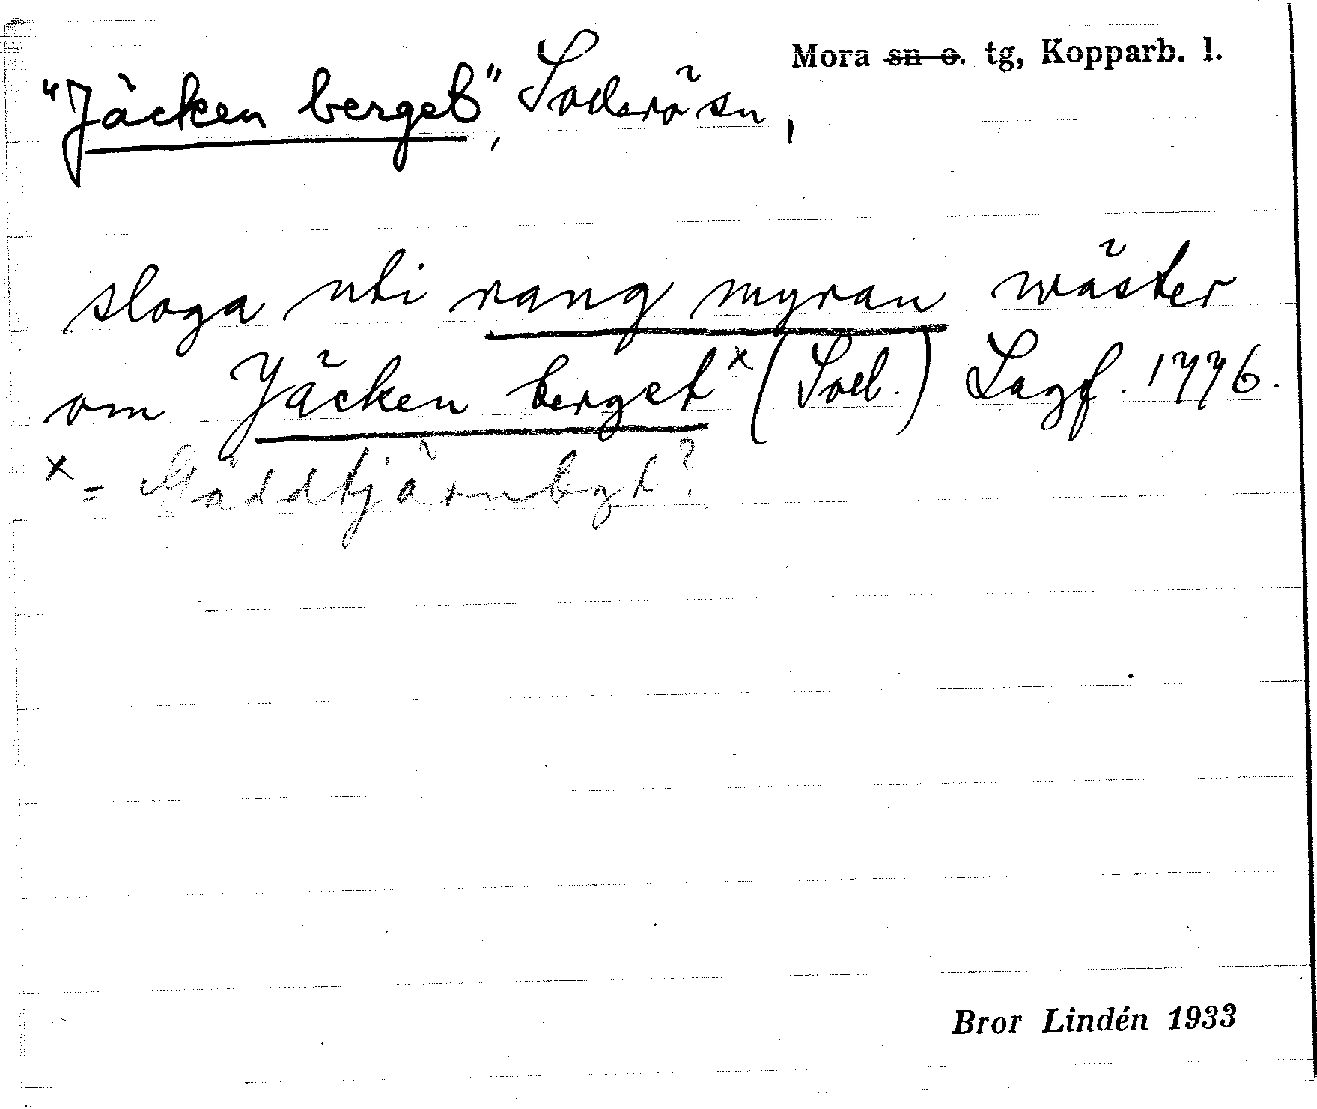 Mora ~~sn o.~~ tg, Kopparb. l.
"Jäcken berget", Sollerö sn,
sloga uti rang myran wäster
om Jäcken berget x (Soll.) Lagf. 1776.
x = Gäddtjärnbgt?
Bror Lindén 1933